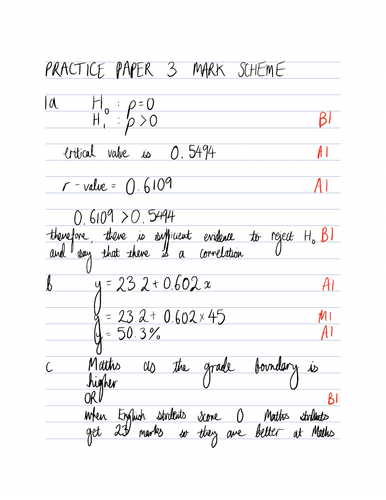 PRACTICE PAPER 3 MARK SCHEME
1a H₀ : ρ=0
H₁ : ρ>0 B1
critical value is 0.5494 A1
r-value = 0.6109 A1
0.6109 > 0.5494
therefore, there is sufficient evidence to reject H₀ B1
and say that there is a correlation
b y = 23.2 + 0.602x A1
y = 23.2 + 0.602 × 45 M1
y = 50.3% A1
c Maths as the grade boundary is
higher
OR B1
when English students score 0 Maths students
get 23 marks so they are better at Maths